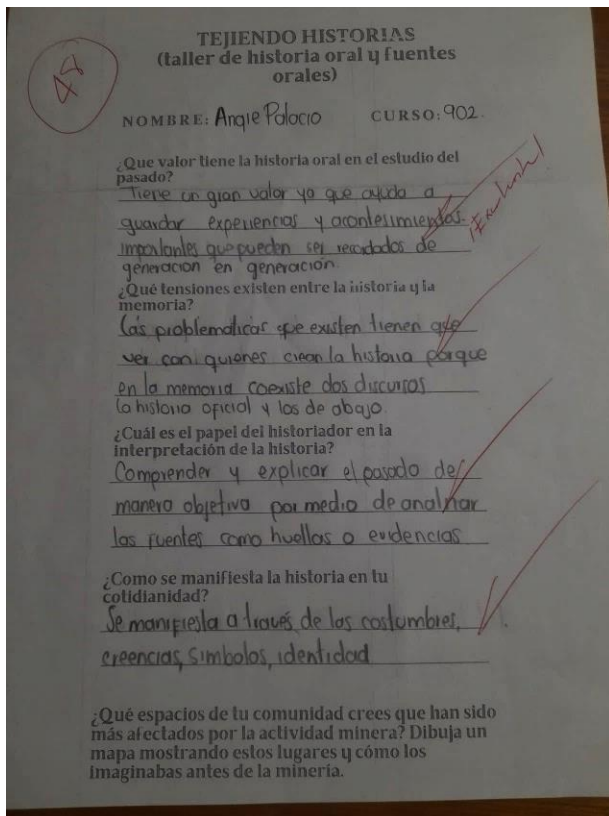 48
TEJIENDO HISTORIAS
(taller de historia oral y fuentes
orales)
NOMBRE: Angie Palacio CURSO: 902.
¿Que valor tiene la historia oral en el estudio del
pasado?
Tiene un gran valor ya que ayuda a
guardar experiencias y acontesimientos
importantes que pueden ser recordados de
generación en generación.
¿Qué tensiones existen entre la historia y la
memoria?
Las problematicas que existen tienen que
ver con quienes crean la historia porque
en la memoria coexiste dos discursos
la historia oficial y los de abajo.
¿Cuál es el papel del historiador en la
interpretación de la historia?
Comprender y explicar el pasado de
manera objetiva por medio de analizar
las fuentes como huellas o evidencias
¿Como se manifiesta la historia en tu
cotidianidad?
Se manifiesta a través de las costumbres,
creencias, simbolos, identidad
¿Qué espacios de tu comunidad crees que han sido
más afectados por la actividad minera? Dibuja un
mapa mostrando estos lugares y cómo los
imaginabas antes de la minería.